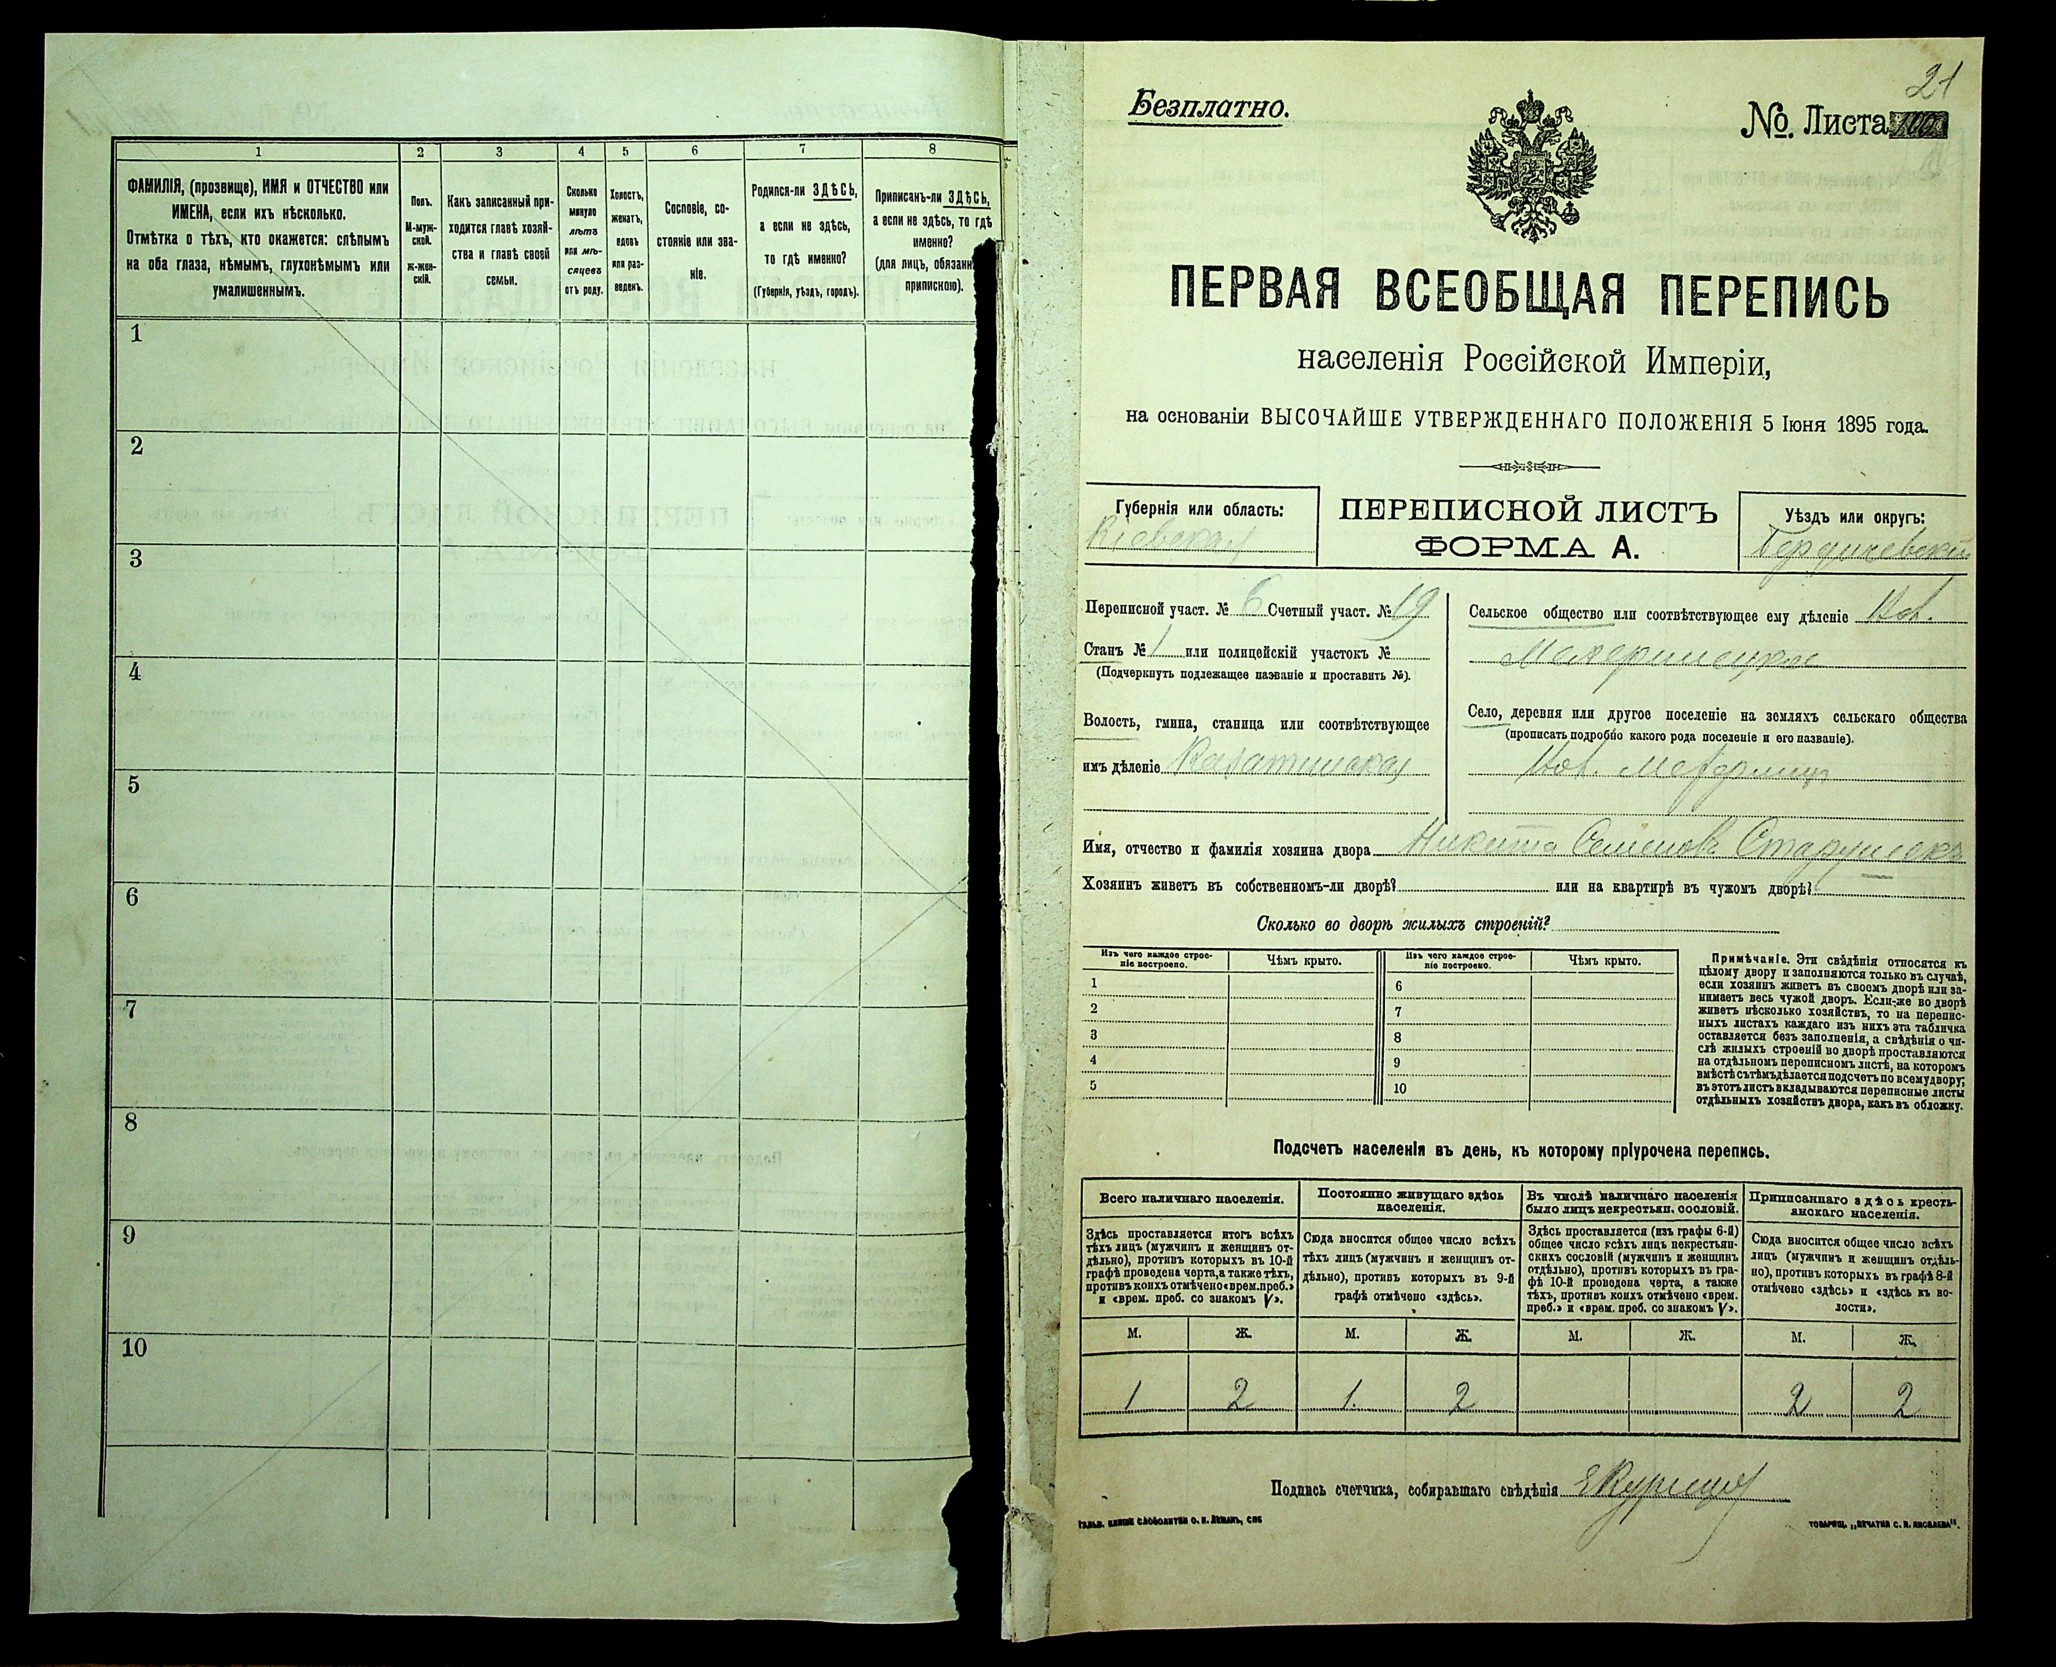 1
2
3
4
5
6
7
8
ФАМИЛІЯ, (прозвище), ИМЯ и ОТЧЕСТВО или
ИМЕНА, если ихъ нѣсколько.
Отмѣтка о тѣхъ, кто окажется: слѣпымъ
на оба глаза, нѣмымъ, глухонѣмымъ или
умалишеннымъ.
Полъ.
М-муж-
ской.
Ж-жен-
скій.
Какъ записанный при-
ходится главѣ хозяй-
ства и главѣ своей
семьи.
Сколько
минуло
лѣтъ
или мѣ-
сяцевъ
отъ роду.
Холостъ,
женатъ,
вдовъ
или раз-
веденъ.
Сословіе, со-
стояніе или зва-
ніе.
Родился-ли ЗДѢСЬ,
а если не здѣсь,
то гдѣ именно?
(Губернія, уѣздъ, городъ).
Приписанъ-ли ЗДѢСЬ,
а если не здѣсь, то гдѣ
именно?
(для лицъ, обязанн
припискою).
1
2
3
4
5
6
7
8
9
10
21
Безплатно.
№. Листа
ПЕРВАЯ ВСЕОБЩАЯ ПЕРЕПИСЬ
населенія Россійской Имперіи,
на основаніи ВЫСОЧАЙШЕ УТВЕРЖДЕННАГО ПОЛОЖЕНІЯ 5 Іюня 1895 года.
Губернія или область:
Кіевская
ПЕРЕПИСНОЙ ЛИСТЪ
ФОРМА А.
Уѣздъ или округъ:
Бердичевскій
Переписной участ. № 6 Счетный участ. № 19
Станъ № 1 или полицейскій участокъ №
(Подчеркнуть подлежащее названіе и проставить №).
Волость, гмина, станица или соотвѣтствующее
имъ дѣленіе Казатинская
Сельское общество или соотвѣтствующее ему дѣленіе Нов.
Махаринецкое
Село, деревня или другое поселеніе на земляхъ сельскаго общества
(прописать подробно какого рода поселеніе и его названіе).
Нов.
Имя, отчество и фамилія хозяина двора Никита Семеновъ
Хозяинъ живетъ въ собственномъ-ли дворѣ? или на квартирѣ въ чужомъ дворѣ?
Сколько во дворѣ жилыхъ строеній?
Изъ чего каждое строе-
ніе построено.
Чѣмъ крыто.
Изъ чего каждое строе-
ніе построено.
Чѣмъ крыто.
1
2
3
4
5
6
7
8
9
10
Примѣчаніе. Эти свѣдѣнія относятся къ
цѣлому двору и заполняются только въ случаѣ,
если хозяинъ живетъ въ своемъ дворѣ или за-
нимаетъ весь чужой дворъ. Если-же во дворѣ
живетъ нѣсколько хозяйствъ, то на перепис-
ныхъ листахъ каждаго изъ нихъ эта табличка
оставляется безъ заполненія, а свѣдѣнія о чи-
слѣ жилыхъ строеній во дворѣ проставляются
на отдѣльномъ переписномъ листѣ, на которомъ
вмѣстѣ съ тѣмъ дѣлается подсчетъ по всему двору;
въ этотъ листъ вкладываются переписные листы
отдѣльныхъ хозяйствъ двора, какъ въ обложку.
Подсчетъ населенія въ день, къ которому пріурочена перепись.
Всего наличнаго населенія.
Здѣсь проставляется итогъ всѣхъ
тѣхъ лицъ (мужчинъ и женщинъ от-
дѣльно), противъ которыхъ въ 10-й
графѣ проведена черта, а также тѣхъ,
противъ коихъ отмѣчено «врем. преб.»
и «врем. преб. со знакомъ V».
Постоянно живущаго здѣсь
населенія.
Сюда вносится общее число всѣхъ
тѣхъ лицъ (мужчинъ и женщинъ от-
дѣльно), противъ которыхъ въ 9-й
графѣ отмѣчено «здѣсь».
Въ числѣ наличнаго населенія
было лицъ некрестьян. сословій.
Здѣсь проставляется (изъ графы 6-й)
общее число всѣхъ лицъ некрестьян-
скихъ сословій (мужчинъ и женщинъ
отдѣльно), противъ которыхъ въ гра-
фѣ 10-й проведена черта, а также
тѣхъ, противъ коихъ отмѣчено «врем.
преб.» и «врем. преб. со знакомъ V».
Приписаннаго здѣсь кресть-
янскаго населенія.
Сюда вносится общее число всѣхъ
лицъ (мужчинъ и женщинъ отдѣль-
но), противъ которыхъ въ графѣ 8-й
отмѣчено «здѣсь» и «здѣсь къ во-
лости».
М. Ж. М. Ж. М. Ж. М. Ж.
1 2 1. 2 2 2
Подпись счетчика, собиравшаго свѣдѣнія
ГАЛЬВ. КЛИШЕ СЛОВОЛИТНИ О. И. ЛЕМАНЪ, СПБ
ТОВАРИЩ. „ПЕЧАТНЯ С. П. ЯКОВЛЕВА".